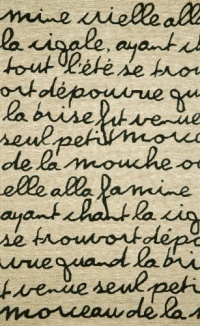 mine crielle alla
la cigale, ayant ch
tout l'été se trouv
ort dépourvue qu
la brise fut venue
seul petit morce
de la mouche ou
elle alla famine
ayant chant la cig
se trouvort dépo
vue quand la bri
t venue seul peti
morceau de la m